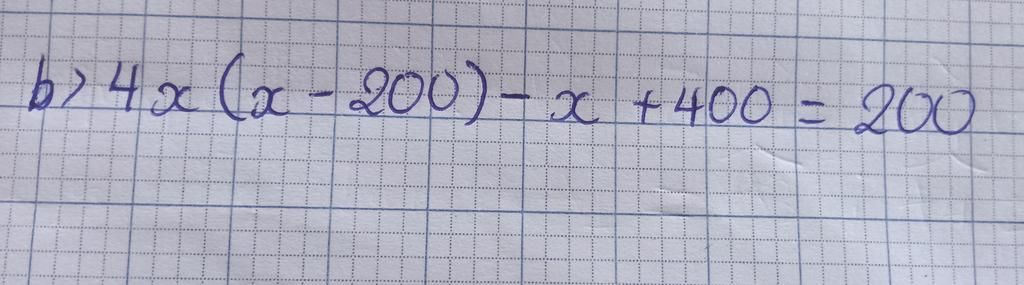 b) 4x(x - 200) - x + 400 = 200